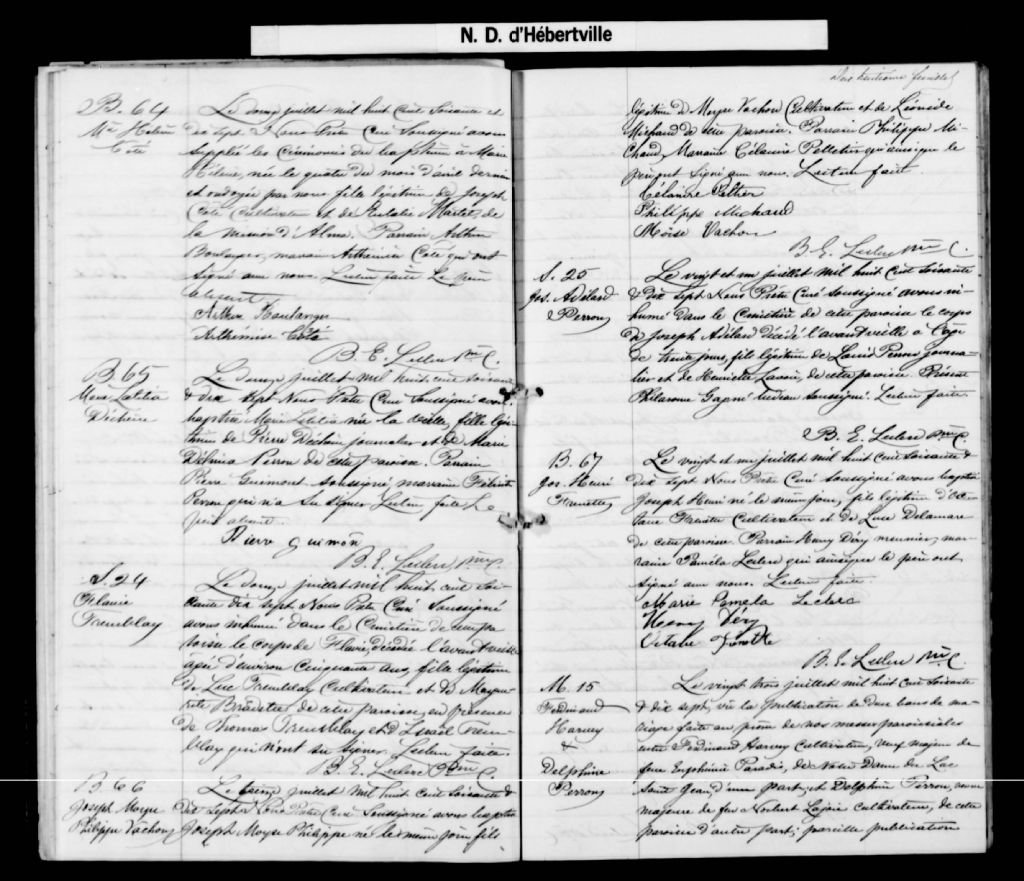 N. D. d'Hébertville
B. 64
Mie Hélène
Côté
Le douze juillet mil huit cent soixante et
dix sept Nous Prêtre Curé soussigné avons
supplée les cérémonies du baptême à Marie
Hélène, née le quatre du mois d'avril dernier
et ondoyée par nous fille légitime de Joseph
Côté cultivateur et de Eulalie Martel, de
la mission d'Alma. Parrain Arthur
Boulanger, marraine Arthémise Côté qui ont
signé avec nous. Lecture faite Le père
absent.
Arthur Boulanger
Arthémise Côté
B. E. Leclerc Ptre C.
B. 65
Marie Latitia
Déchène
Le douze juillet mil huit cent soixante
& dix sept Nous Prêtre Curé soussigné avons
baptisé Marie Letitia née la veille, fille légi-
time de Pierre Déchène journalier et de Marie
Delvina Perron de cette paroisse. Parrain
Pierre Guimont soussigné, marraine
Perron qui n'a su signer Lecture faite Le
père absent.
Pierre Guimon
B. E. Leclerc, Ptre C.
S. 24
Flavie
Tremblay
Le douze juillet mil huit cent soi-
xante dix sept Nous Prêtre Curé soussigné
avons inhumé dans le Cimetière de cette pa
roisse le corps de Flavie, décédée l'avant veille
agée d'environ cinquante ans, fille légitime
de Luc Tremblay cultivateur et de Margue-
rite de cette paroisse, en présence
de Thomas Tremblay et d'Israël Trem-
blay qui n'ont su signer. Lecture faite.
B. E. Leclerc Ptre C.
B. 66
Joseph Moyse
Philippe Vachon
Le juillet mil huit cent soixante &
dix sept Nous Prêtre Curé soussigné avons baptisé
Joseph Moyse Philippe né le même jour, fils
feuillet
légitime de Moyse Vachon cultivateur et de Léocadie
Michaud de cette paroisse. Parrain Philippe Mi-
chaud, Marraine Célanire Pelletier qui ainsi que le
père ont signé avec nous. Lecture faite
Célanire Peltier
Philippe Michaud
Moïse Vachon
B. E. Leclerc Ptre C.
S. 25
Jos. Adélard
Perron
Le vingt et un juillet mil huit cent soixante
& dix sept Nous Prêtre Curé soussigné avons in-
humé dans le Cimetière de cette paroisse le corps
de Joseph Adélard décédé l'avant veille à l'age
de trente jours, fils légitime de Louis Perron journa-
lier et de Henriette Lavoie, de cette paroisse. Présent
Philarome Gagné soussigné. Lecture faite.
B. E. Leclerc Ptre C.
B. 67
Jos. Henri
Frenette
Le vingt et un juillet mil huit cent soixante &
dix sept Nous Prêtre Curé soussigné avons baptisé
Joseph Henri né le même jour, fils légitime d'Oc-
tave Frenette cultivateur et de Luce Delamare
de cette paroisse. Parrain Henry Déry meunier, mar-
raine Paméla Leclerc qui ainsi que le père ont
signé avec nous. Lecture faite.
Marie Pamela Leclerc
Henry Déry
Octave Frenette
B. E. Leclerc Ptre C.
M. 15
Ferdinand
Harvey
&
Delphine
Perron
Le vingt trois juillet mil huit cent soixante
& dix sept, vu la publication de deux bans de ma-
riage faite au prône de nos messes paroissiales
entre Ferdinand Harvey cultivateur, veuf majeur de
feue Euphémie Paradis, de Notre Dame du Lac
Saint Jean, d'une part, et Delphine Perron, veuve
majeure de feu Norbert Lajoie cultivateur, de cette
paroisse d'autre part; pareille publication